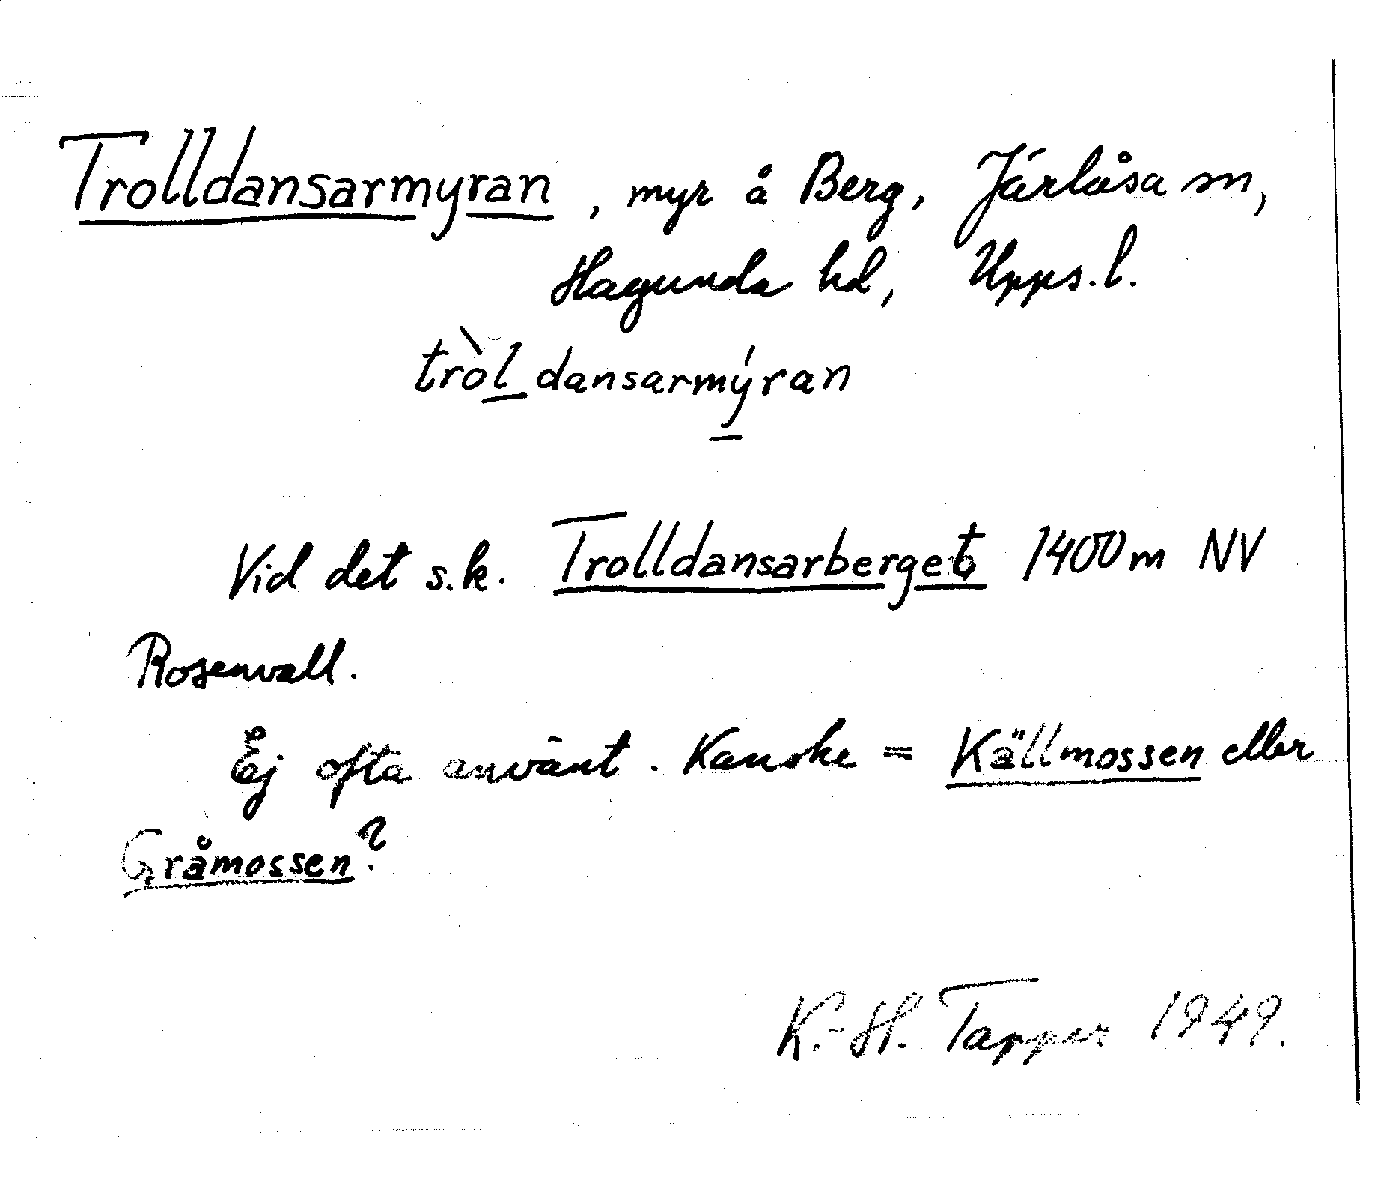 Trolldansarmyran, myr å Berg, Järlåsa sn,
Hagunda hd, Upps. l.
tròl dansarmýran
Vid det s.k. Trolldansarberget 1400 m NV
Rosenvall.
Ej ofta använt. Kanske = Källmossen eller
Gråmossen?
K.-H. Tapper 1949.